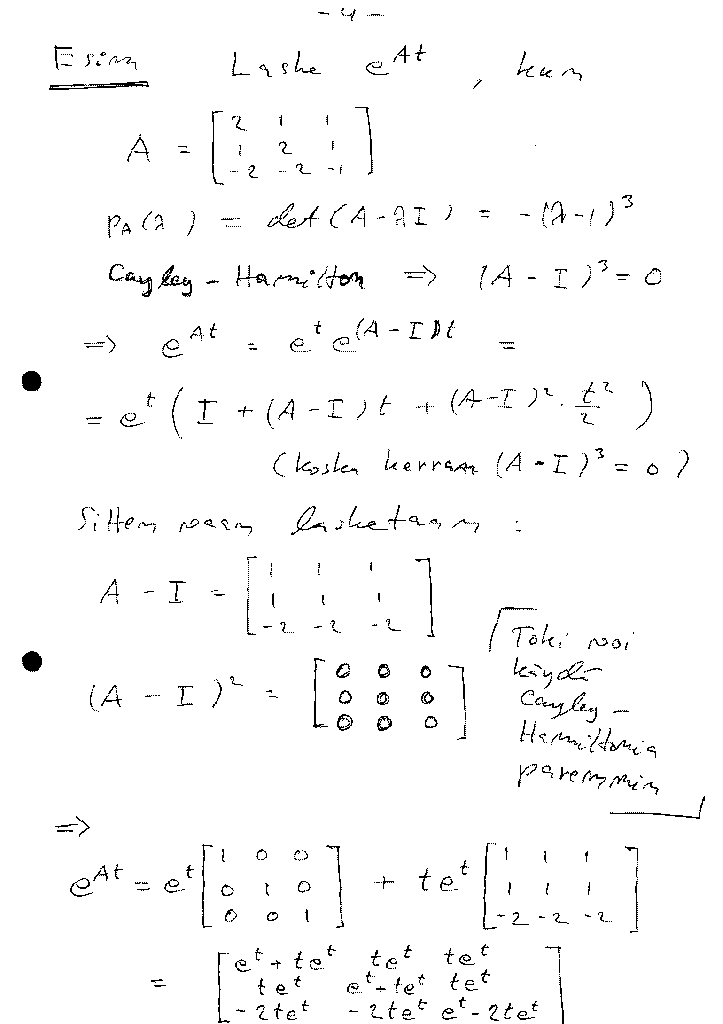 - 4 -
Esim Laske e^{At}, kun
A = [2 1 1
1 2 1
-2 -2 -1]
p_A(λ) = det(A-λI) = -(λ-1)^3
Cayley-Hamilton => (A - I)^3 = 0
=> e^{At} = e^t e^{(A-I)t} =
= e^t (I + (A-I)t + (A-I)^2 · t^2/2)
(koska kerran (A-I)^3 = 0)
Sitten vaan lasketaan :
A - I = [1 1 1
1 1 1
-2 -2 -2]
(A - I)^2 = [0 0 0
0 0 0
0 0 0]
Toki voi
käydä
Cayley-
Hamiltonia
paremmin
=>
e^{At} = e^t [1 0 0
0 1 0
0 0 1] + te^t [1 1 1
1 1 1
-2 -2 -2]
= [e^t + te^t te^t te^t
te^t e^t + te^t te^t
-2te^t -2te^t e^t - 2te^t]